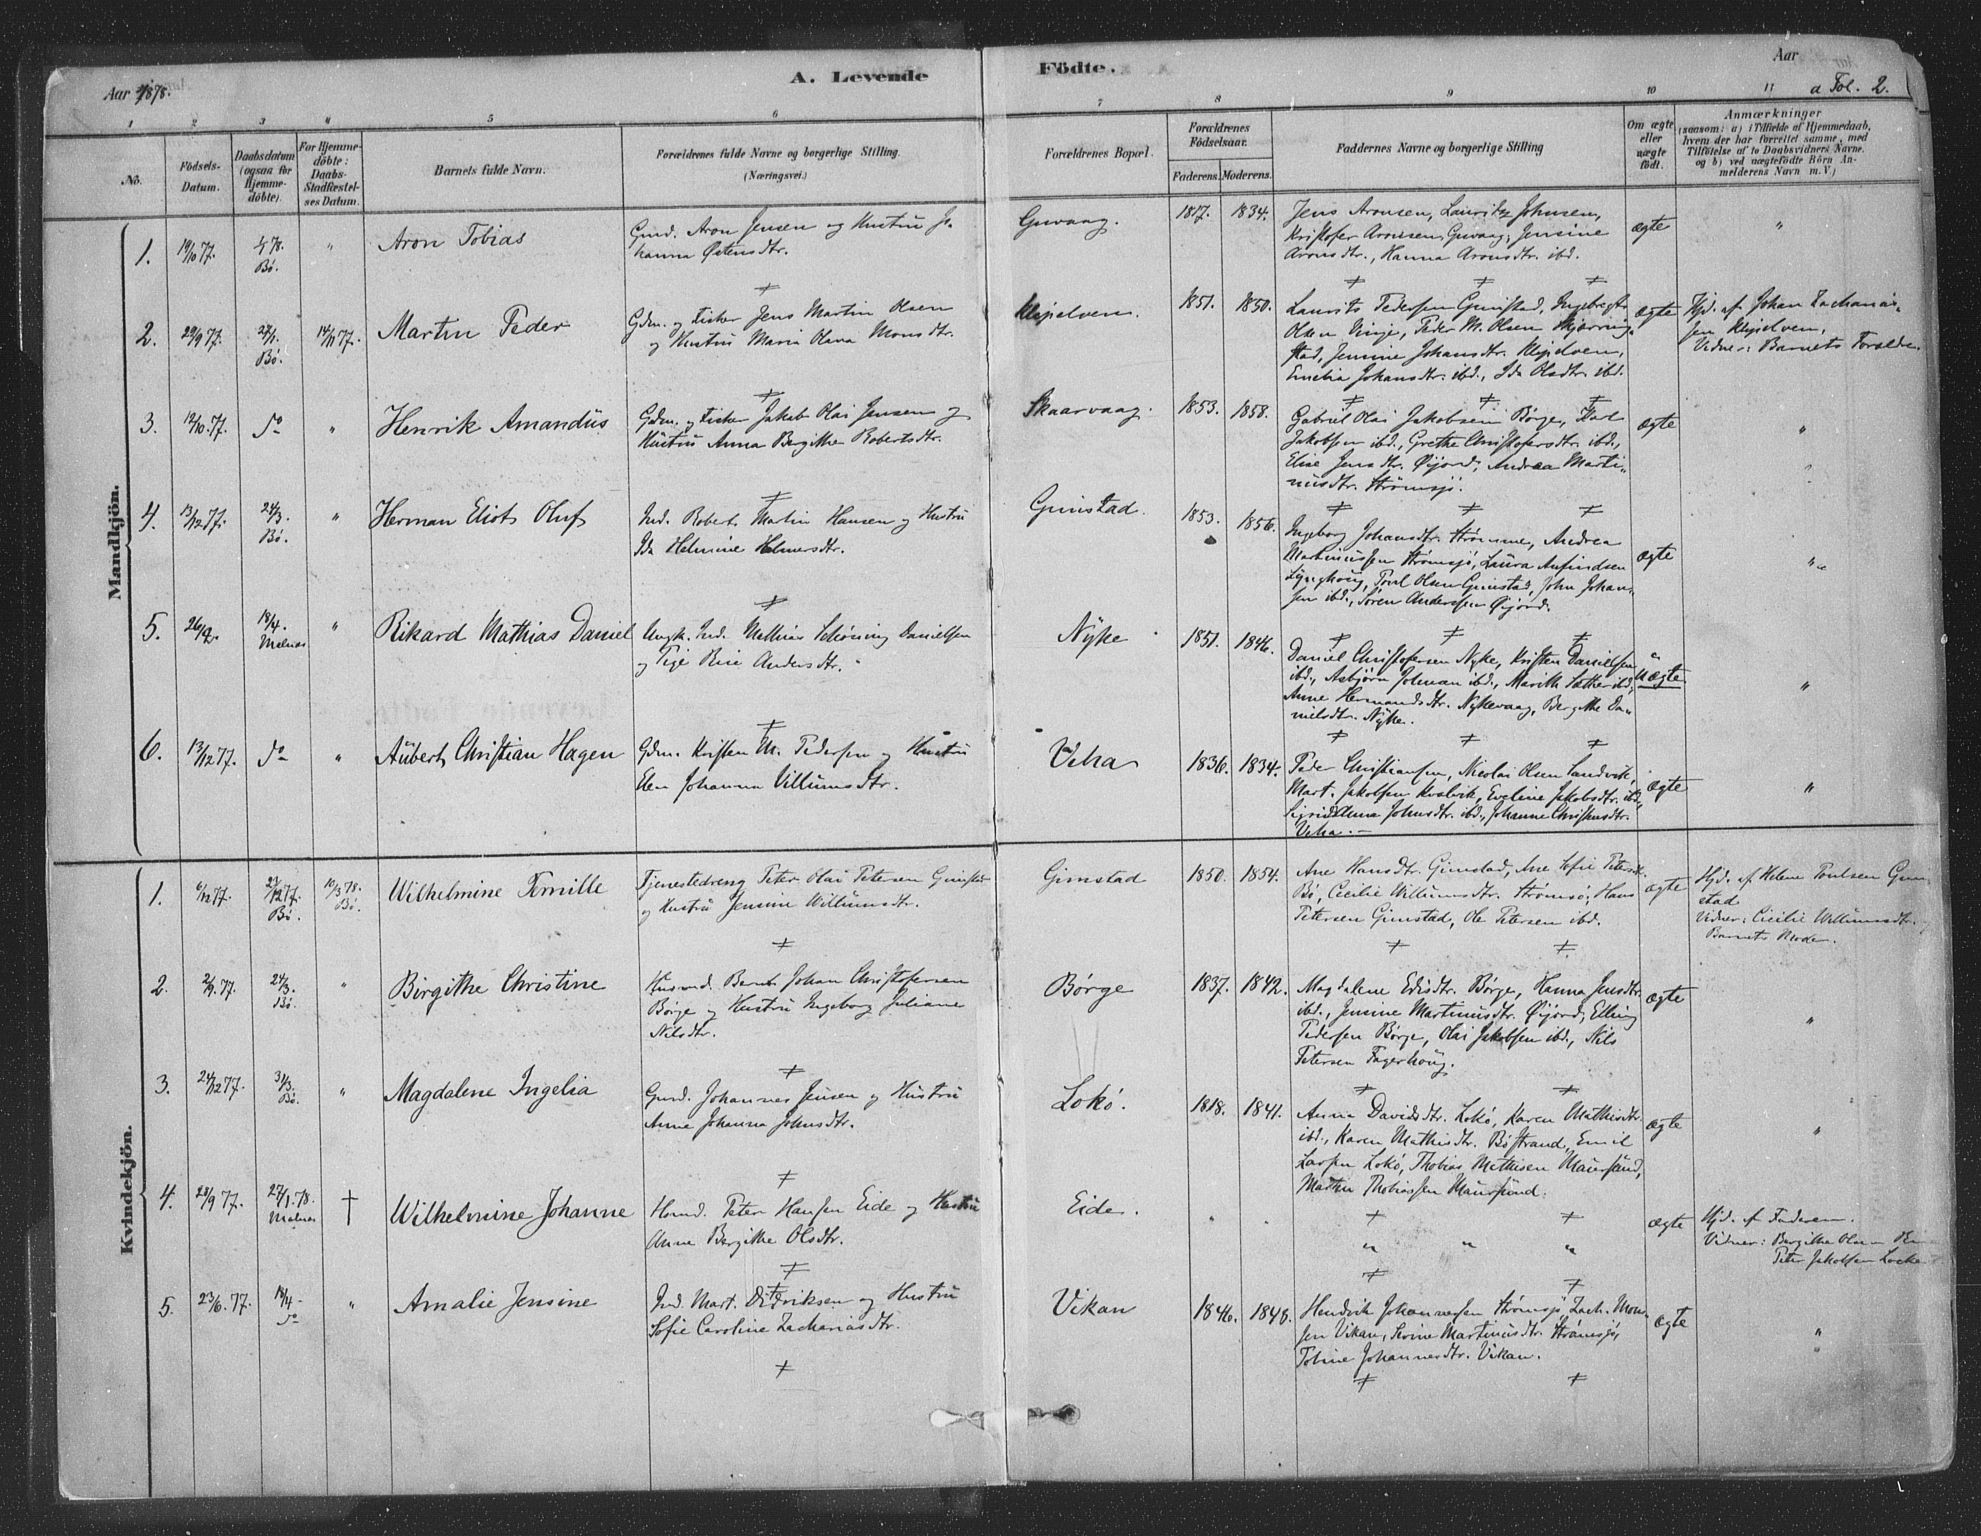 Aar 1878.
A. Levende
Födte.
Aar
a Fol. 2.
1 2 3 4 5 6 7 8 9 10 11
No.
Födsels-
Datum.
Daabsdatum
(ogsaa for
Hjemme-
döbte).
For Hjemme-
döbte:
Daabs-
Stadfæstel-
ses Datum.
Barnets fulde Navn.
Forældrenes fulde Navne og borgerlige Stilling.
(Næringsvei.)
Forældrenes Bopæl.
Forældrenes
Födselsaar.
Faderens. Moderens.
Faddernes Navne og borgerlige Stilling
Om ægte
eller
uægte
födt.
Anmærkninger
(saasom: a) i Tilfælde af Hjemmedaab,
hvem der har forrettet samme, med
Tilföielse af to Daabsvidners Navne.
og b) ved uægtefödte Börn An-
melderens Navn m. V.)
Mandkjön.
1. 19/10 77. Bø. " Aron Tobias
Gmd. Aron Jensen og Hustru Jo-
hanna Østensdtr.
Guvaag. 1817. 1834.
Jens Aronsen, Lauritz Johnsen,
Kristofer Aronsen, Guvaag, Jensine
Aronsdtr., Hanna Aronsdtr. ibd.
ægte "
2. 29/9 77. Bø. 14/11 77. Martin Peder
Gdm. og Fisker Jens Martin Olsen
og Hustru Maria Olava Monsdtr.
Klejelven. 1851. 1850.
Laurits Pedersen Gimstad, Ingebregt
Olsen Vinje, Peder M. Olsen Skjærring-
stad, Jensine Johansdtr. Klejelven,
Emelia Johansdtr. ibd., Ida Olsdtr. ibd.
ægte
Hjd. af Johan Zacharias-
sen Klejelven.
Vidner: Barnets Forældre.
3. 12/10. 77. do " Henrik Amandus
Gdm. og Fisker Jakob Olai Jensen og
Hustru Anna Bergithe Robertsdtr.
Skaarvaag. 1853. 1858.
Gabriel Olai Jakobsen Børge, Karl
Jakobsen ibd., Grethe Christofersdtr. ibd.,
Elise Jensdtr. Øijord, Andrea Marti-
nusdtr. Strømsjø.
ægte "
4. 13/12 77. 24/3. Bø. " Herman Eliot Oluf
Ind. Robert Martin Hansen og Hustru
Ida Helmine Helmersdtr.
Gimstad. 1853. 1856.
Ingeborg Johansdtr. Strømme, Andrea
Martinussen Strømsjø, Laura Anfindsen
Lynghoug, Poul Olsen Gimstad, John Johan-
sen ibd., Søren Anderssen Øijord.
ægte "
5. 18/4. Malnes " Rikard Mathias Daniel
Ungk. Ind. Mathias Schøning Danielsen
og Pige Andersdtr.
Nyke 1851. 1846.
Daniel Christofersen Nyke, Kristen Danielsen
ibd., Asbjørn Johnsen ibd., Marith Sæther ibd.,
Anne Hermandsdtr. Nykevaag, Bergithe Da-
nielsdtr. Nyke.
uægte "
6. 13/12 77. do " Aubert Christian Hagen
Gdm. Kristen M. Pedersen og Hustru
Elen Johanna Villumsdtr.
Veha 1836. 1834.
Peder Christiansen, Nicolai Olsen Sandvik,
Mart. Jakobsen Kvalvik, Eveline Jakobsdtr. ibd.,
Sigrid Anna Johnsdtr. ibd., Johanne Christensdtr.
Veha.
ægte "
Kvindekjön.
1. 6/12 77. Bø. 10/3 78. Bø. Wilhelmine Pernille
Tjenestedreng Peter Olai Petersen Gimstad
og Hustru Jensine Willumsdtr.
Gimstad 1850. 1854.
Ane Hansdtr. Gimstad, Ane Sofie Petersdtr.
Bø, Cecilie Willumsdtr. Strømsø, Hans
Petersen Gimstad, Ole Petersen ibd.
ægte
Hjd. af Helene Poulsen Gim-
stad
Vidner: Cicilie Willumsdtr.
Barnets Moder.
2. 77. 24/3. Bø. " Birgithe Christine
Husmd. Bernt Johan Christofersen
Børge og Hustru Ingeborg Juliane
Nilsdtr.
Børge 1837. 1842.
Magdalene Edisdtr. Børge, Hanna Jensdtr.
ibd., Jensine Martinusdtr. Øijord, Elling
Pedersen Børge, Olai Jakobsen ibd., Nils
Petersen Fagerhoug.
ægte "
3. 24/12 77. 31/3. Bø. " Magdalene Ingelia
Gmd. Johannes Jensen og Hustru
Anne Johanna Johnsdtr.
Lokø. 1818. 1841.
Anna Davidsdtr. Lokø, Karen Mathisdtr.
ibd., Karen Mathisdtr. Bøstrand, Emil
Larsen Lokø, Thobias Mathisen Maursund,
Martin Thobiassen Maursund.
ægte "
4. 28/9 77. 27/1. 78. Malnes † Wilhelmine Johanne
Husmd. Peter Hansen Eide og Hustru
Anne Bergithe Olsdtr.
Eide. " "
" " "
ægte
Hjd. af Faderen.
Vidner: Bergithe Olsen
Peter Jakobsen Locke
5. 23/6. 77. 18/4. do " Amalie Jensine
Ind. Mart. Didriksen og Hustru
Sofie Caroline Zachariasdtr.
Vikan 1846. 1848.
Hendrik Johannessen Strømsjø, Zach. Mon-
sen Vikan, Serine Martinusdtr. Strømsjø,
Tobine Johannesdtr. Vikan.
ægte "